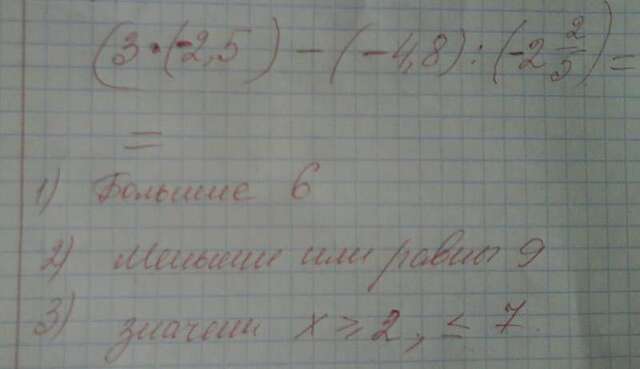 (3·(-2,5) - (-4,8) : (-2 2/5) =
=
1) Большие 6
2) Меньши или равны 9
3) значени x ≥ 2, ≤ 7.